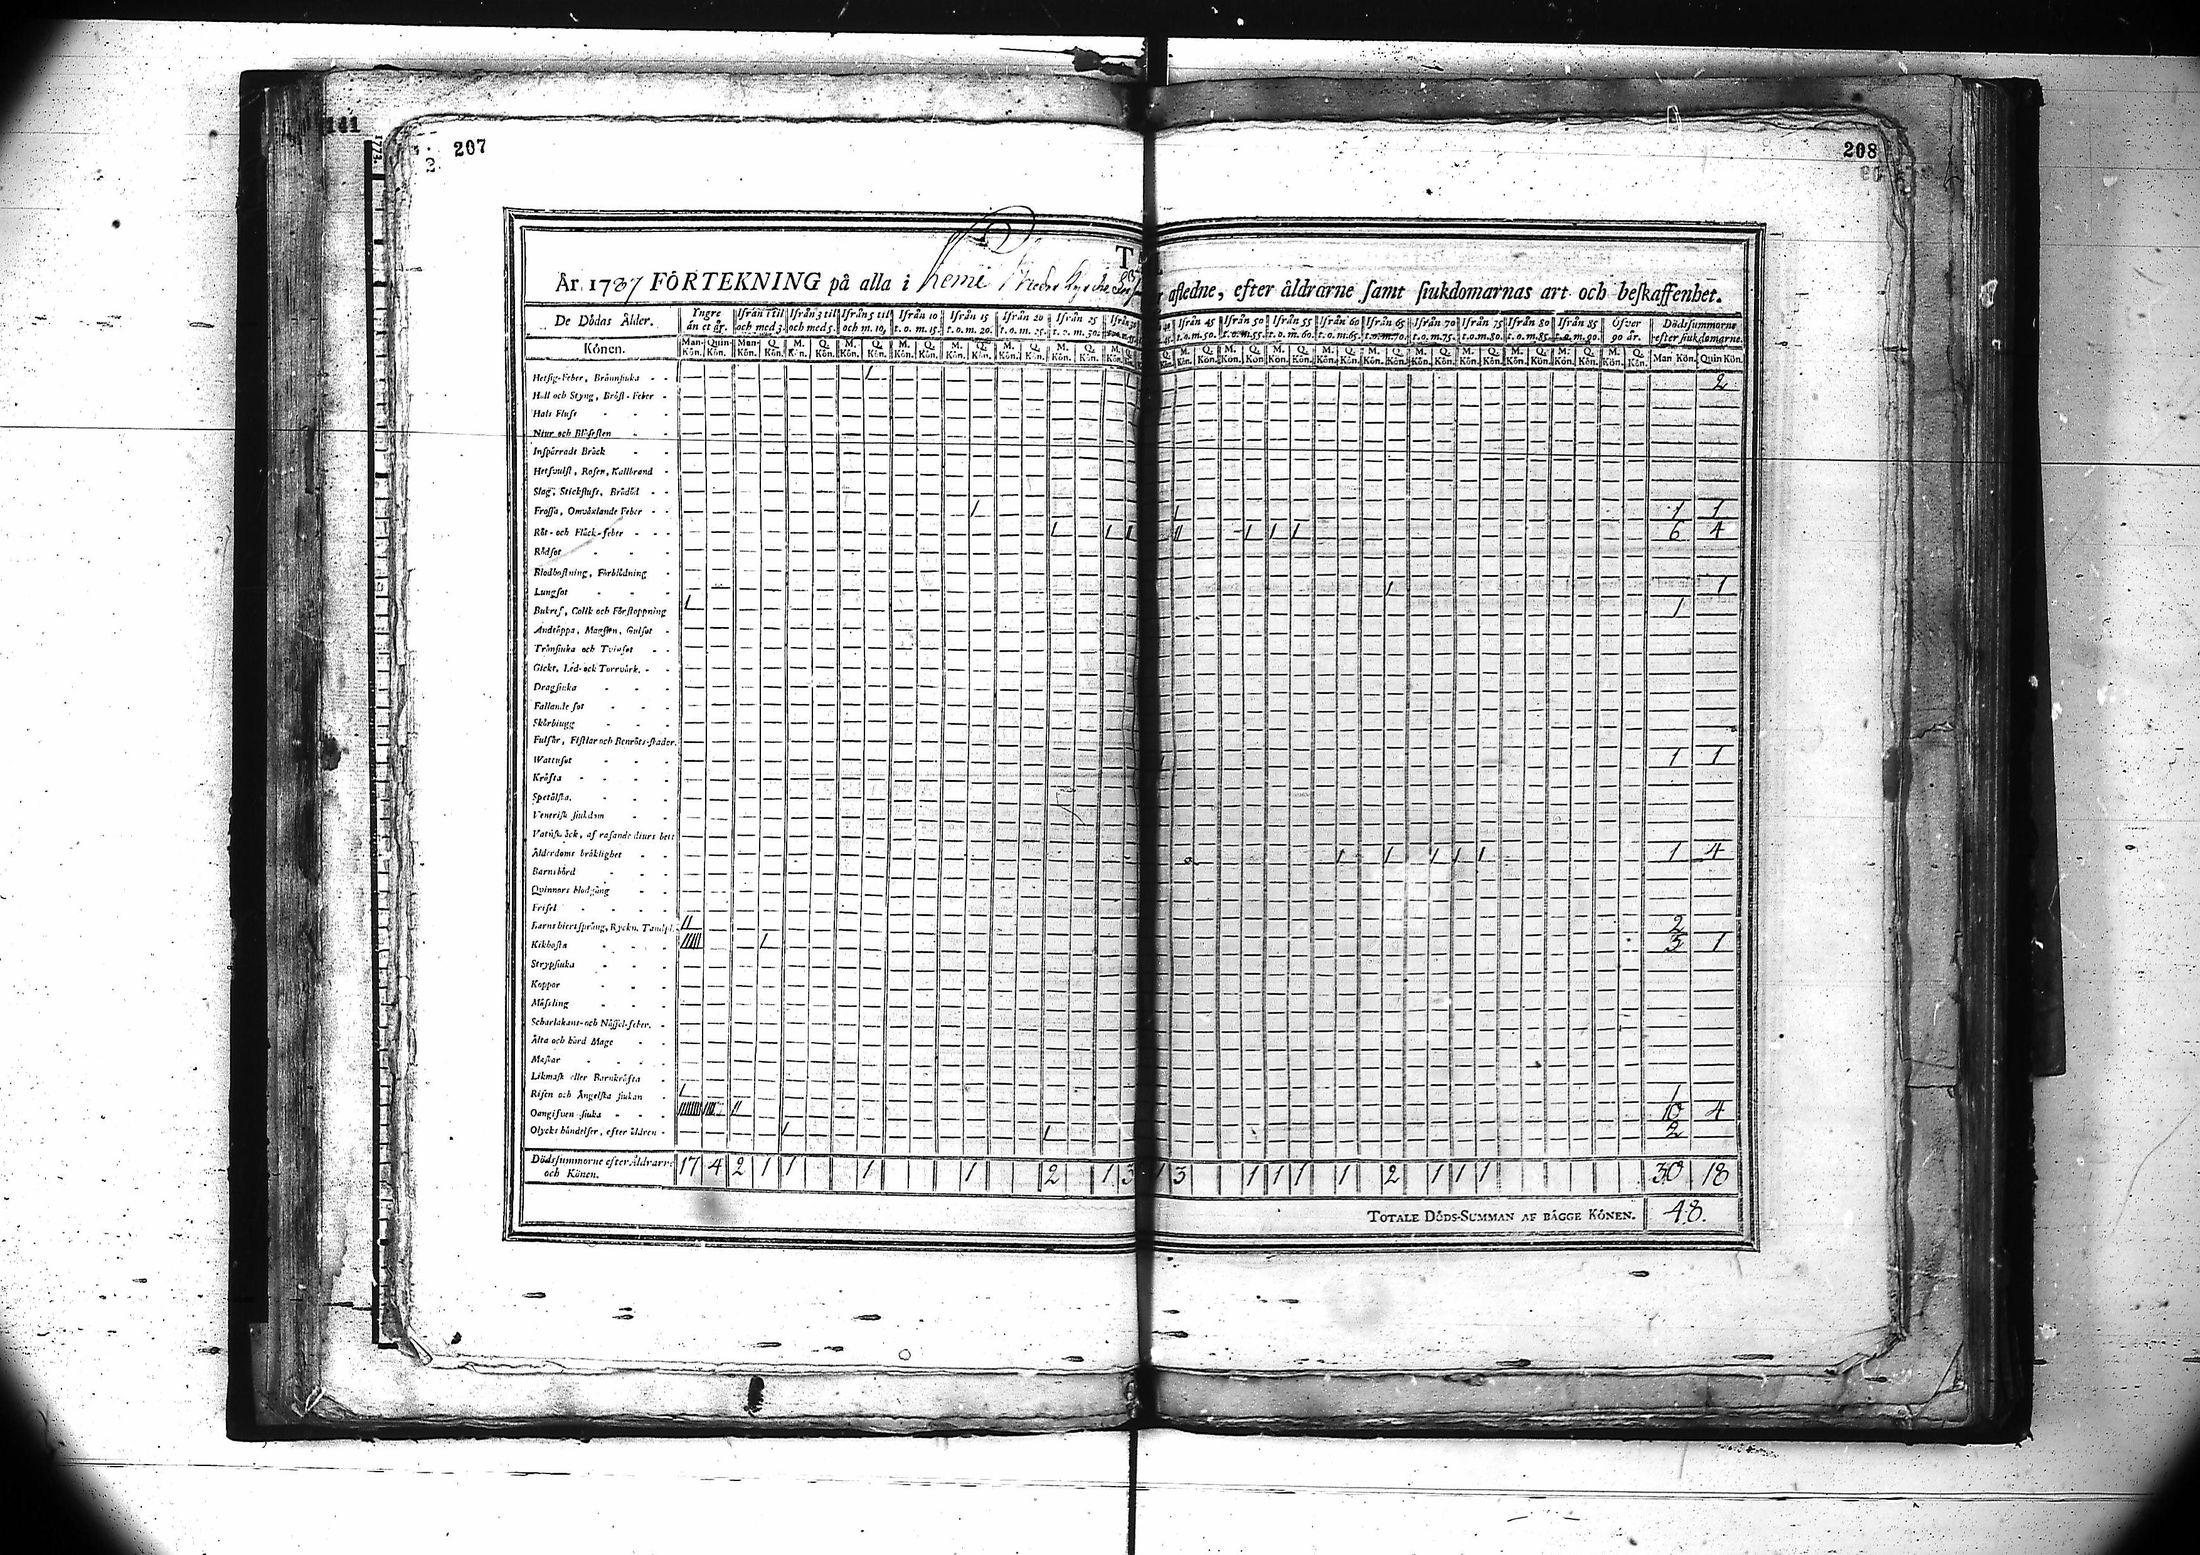 141
207
208
År 1787 FÖRTEKNING på alla i Kemi afledne, efter åldrarne samt siukdomarnas art och beskaffenhet.
De Dödas Ålder. Yngre än et år. Ifrån 1 til och med 3. Ifrån 3 til och med 5. Ifrån 5 til och m. 10. Ifrån 10 t.o.m. 15. Ifrån 15 t.o.m. 20. Ifrån 20 t.o.m. 25. Ifrån 25 t.o.m. 30. Ifrån 45 t.o.m. 50. Ifrån 50 t.o.m. 55. Ifrån 55 t.o.m. 60. Ifrån 60 t.o.m. 65. Ifrån 65 t.o.m. 70. Ifrån 70 t.o.m. 75. Ifrån 75 t.o.m. 80. Ifrån 80 t.o.m. 85. Ifrån 85 t.o.m. 90. Öfver 90 år. Dödssummorne efter siukdomarne.
Könen. Man-Kön. Quin-Kön. Man-Kön. Q. Kön. M. Kön. Q. Kön. M. Kön. Q. Kön. M. Kön. Q. Kön. M. Kön. Q. Kön. M. Kön. Q. Kön. M. Kön. Q. Kön. Man Kön. Quin Kön.
Hetsig-Feber, Brännsiuka 1 2
Håll och Styng, Bröst-Feber
Hals Fluss
Niur och Blåsesten
Inspärradt Bråck
Hetsvulst, Rosen, Kallbrand
Slag, Stickfluss, Brådöd
Frossa, Omväxlande Feber 1 1 1 1
Röt- och Fläck-feber 1 1 1 11 1 1 1 6 4
Rödsot
Blodhostning, Förblödning
Lungsot 1 1
Bukref, Colik och Förstoppning 1 1
Andtäppa, Magsten, Gulsot
Trånsiuka och Tvinsot
Gickt, Led- ock Torrvärk.
Dragsiuka
Fallande sot
Skörbiugg
Fulsår, Fistlar och Benröts-skador.
Wattusot 1 1 1
Kräfta
Spetälska.
Venerisk siukdom
Vatuskräck, af rasande diurs bett
Ålderdoms bräklighet 1 1 1 1 1 1 4
Barnsbörd
Quinnors blodgång
Frisel
Barns hiertsprång, Ryckn. Tandpl. 11 2
Kikhosta 11111 1 5 1
Strypsiuka
Koppor
Mässling
Scharlakans- och Nässel-feber.
Älta och hård Mage
Maskar
Likmask eller Barnkräfta
Risen och Ängelska siukan 1 1
Oangifven siuka 11 10 4
Olycks händelser, efter åldren 1 1 2
Dödssummorne efter Åldrarne och Könen. 17 4 2 1 1 1 1 2 1 3 1 3 1 1 1 1 2 1 1 1 30 18
TOTALE DÖDS-SUMMAN AF BÄGGE KÖNEN. 48.